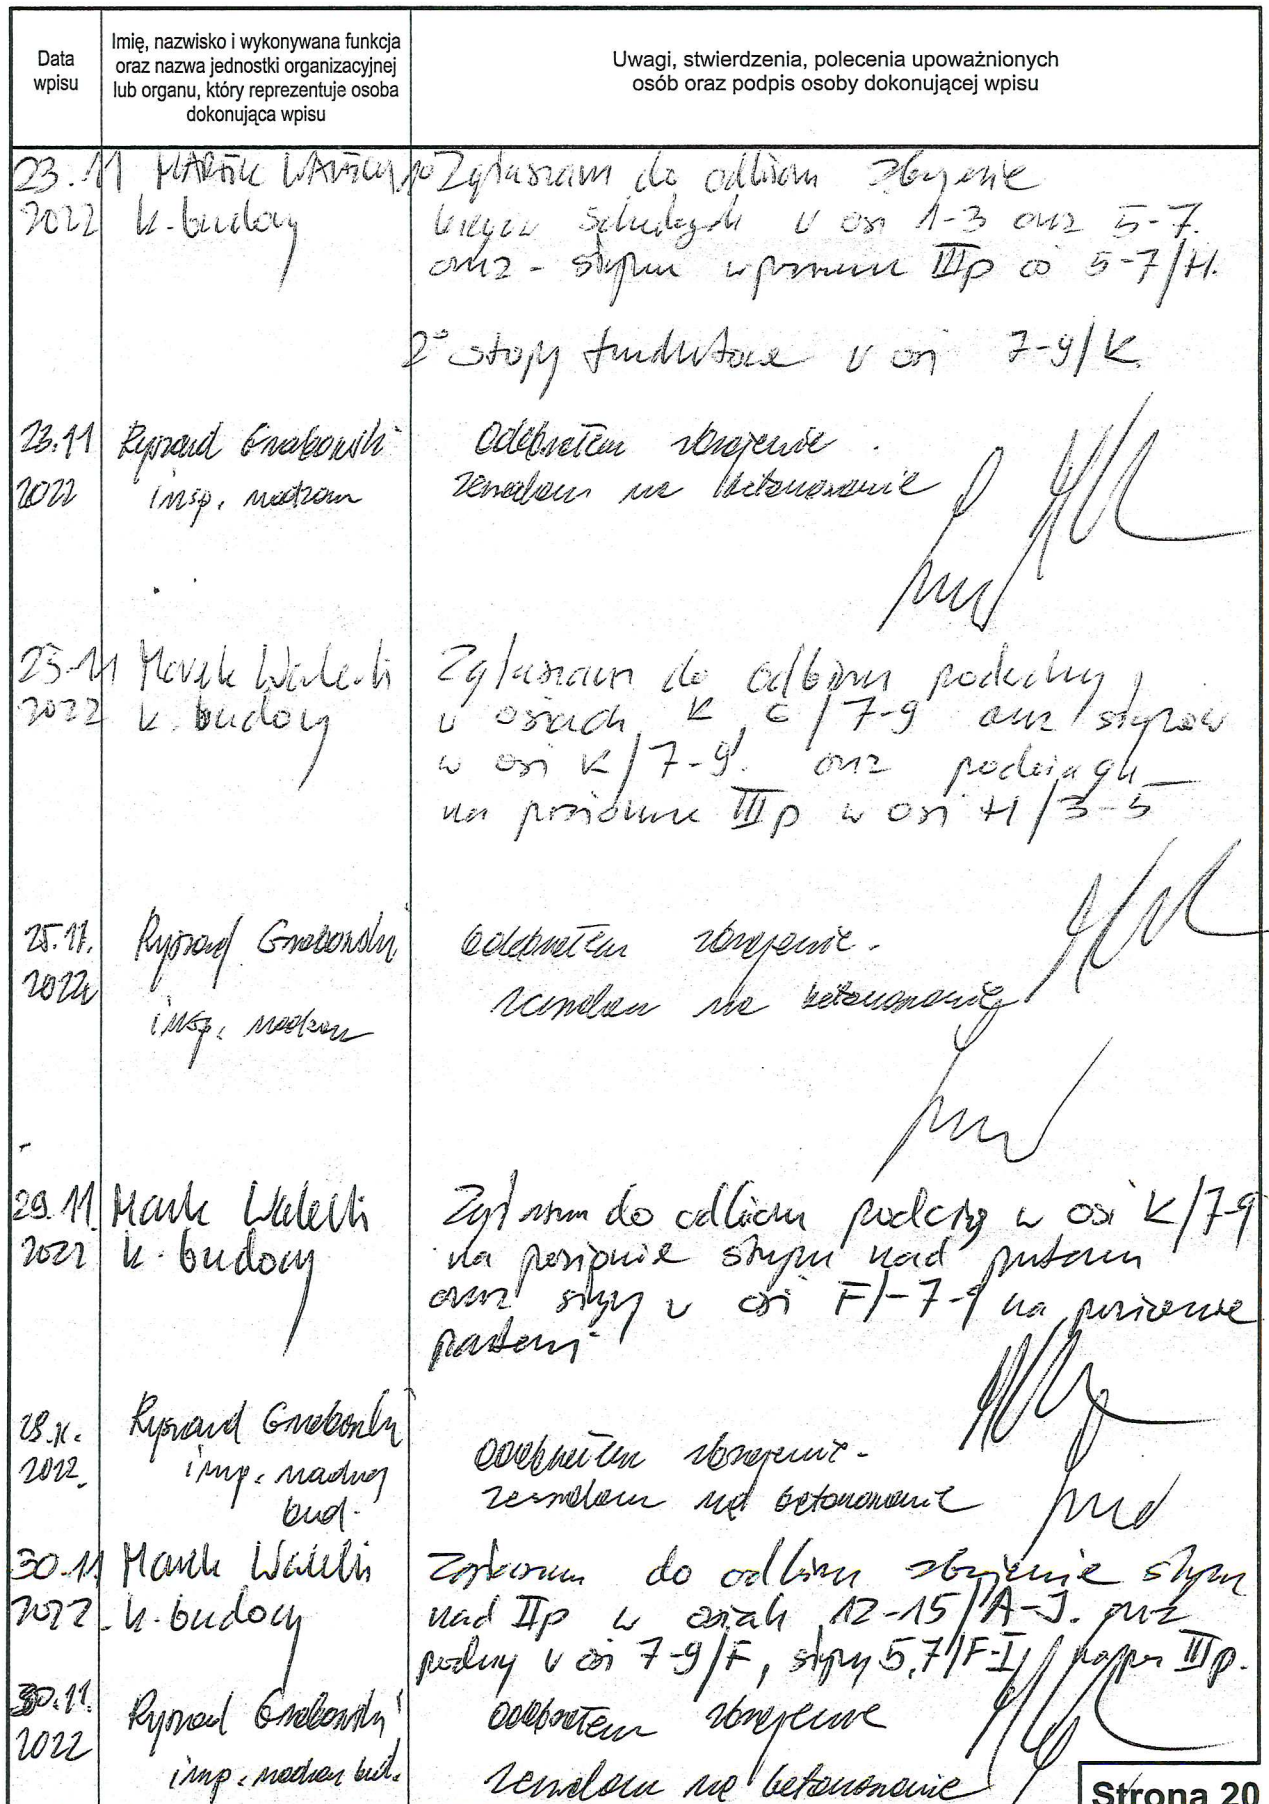 Data
wpisu
Imię, nazwisko i wykonywana funkcja
oraz nazwa jednostki organizacyjnej
lub organu, który reprezentuje osoba
dokonująca wpisu
Uwagi, stwierdzenia, polecenia upoważnionych
osób oraz podpis osoby dokonującej wpisu
23.11
2022
k. budowy
Zgłaszam do odbioru zbrojenie
w osi 1-3 oraz 5-7.
oraz - stropu w poziomie IIIp 5-7/H.
stopy fundamtowe w osi 7-9/K
23.11
2022
Ryszard Grabowski
insp. nadzoru
Odebrałem zbrojenie.
zezwalam na betonowanie
25.11
2022
Marek Walecki
k. budowy
Zgłaszam do odbioru
w osiach K, C/7-9 oraz
w osi K/7-9. oraz podciągu
na poziomie IIIp w osi H/3-5
25.11.
2022
Ryszard Grabowski
insp. nadzoru
Odebrałem zbrojenie.
zezwalam na betonowanie
29.11.
2022
Marek Walecki
k. budowy
Zgłaszam do odbioru podciąg w osi K/7-9
na poziomie stropu nad
oraz w osi F/-7-9 na poziomie
2022.
Ryszard Grabowski
insp. nadzoru
bud.
odebrałem zbrojenie.
zezwalam na betonowanie
30.11
2022.
Marek Walecki
k. budowy
Zgłaszam do odbioru zbrojenie stropu
nad IIp w osiach 12-15/A-J. oraz
w osi 7-9/F, 5,7/F-I, IIIp.
30.11.
2022
Ryszard Grabowski
insp. nadzoru bud.
odebrałem zbrojenie
zezwalam na betonowanie
Strona 20